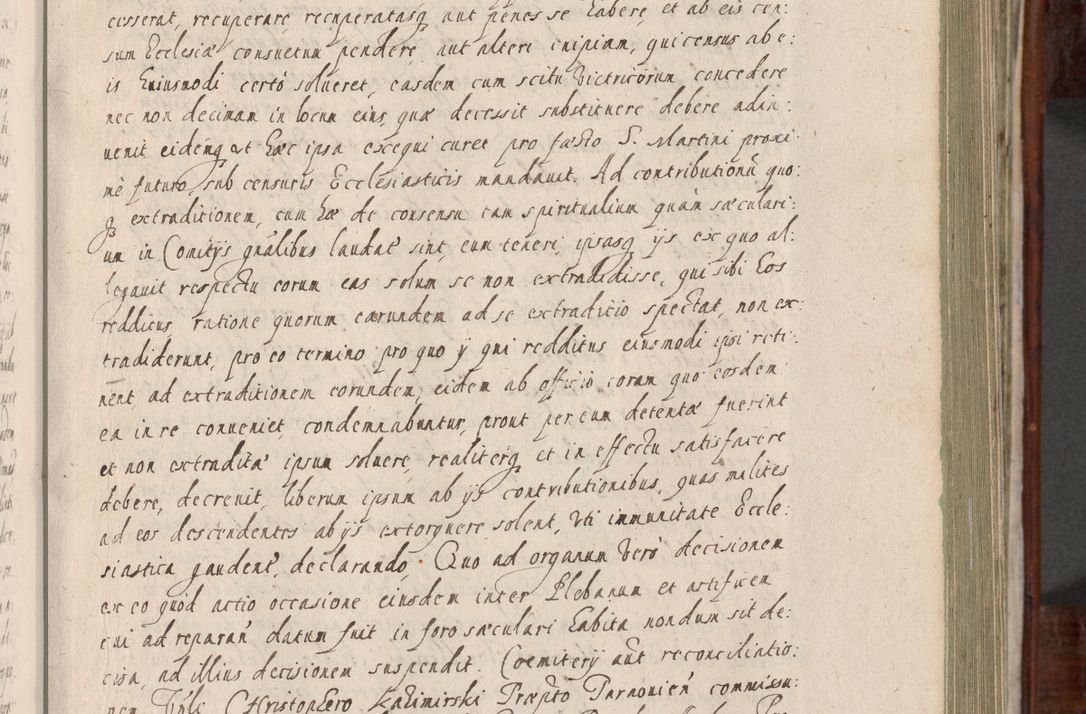 cesserat, recuperare, recuperatasq aut penes se habere, et ab eis cen:
sum Ecclesiæ consuetum pendere, aut alteri cuipiam, qui census ab e:
is huiusmodi certò solueret, easdem cum scitu Victricorum concedere
nec non decimam in locum eius quæ decessit substituere debere adin:
uenit eidemq ut hæc ipsa exequi curet pro fæsto S. Martini proxi
mè futuro, sub censuris Ecclesiasticis mandauit. Ad contributionũ quo:
q extraditionem, cum hæ de consensu tam spiritualium quàm sæculari:
um in Comitijs gnâlibus laudatæ sint, eum teneri, ipsasq ijs ex quo al:
legauit respectu eorum eas solum se non extradidisse, qui sibi Eos
redditus, ratione quorum earundem ad se extraditio spectat, non ex:
tradiderunt, pro eo termino pro quo ij qui redditus eiusmodi ipsi reti:
nent, ad extraditionem eorundem, eidem ab officio coram quo eosdem
ea in re conueniet, condemnabuntur, prout per eum detentæ fuerint
et non extraditæ ipsum soluere, realiterq et in effectu satisfacere
debere, decreuit, liberum ipsum ab ijs contributionibus, quas milites
ad eos descendentes ab ijs extorquere solent, Vti immunitate Eccle:
siastica gaudentẽ, declarando. Quo ad organum Verò decisionem
ex eo quòd actio occasione eiusdem inter Plebanum et artificem
cui ad reparañ datum fuit in foro sæculari habita nondum sit de:
cisa, ad illius decisionem suspendit. Coemiterij aũt reconciliatio:
nem Christophero Kazimirski Præpto Tarnouieñ commissu: